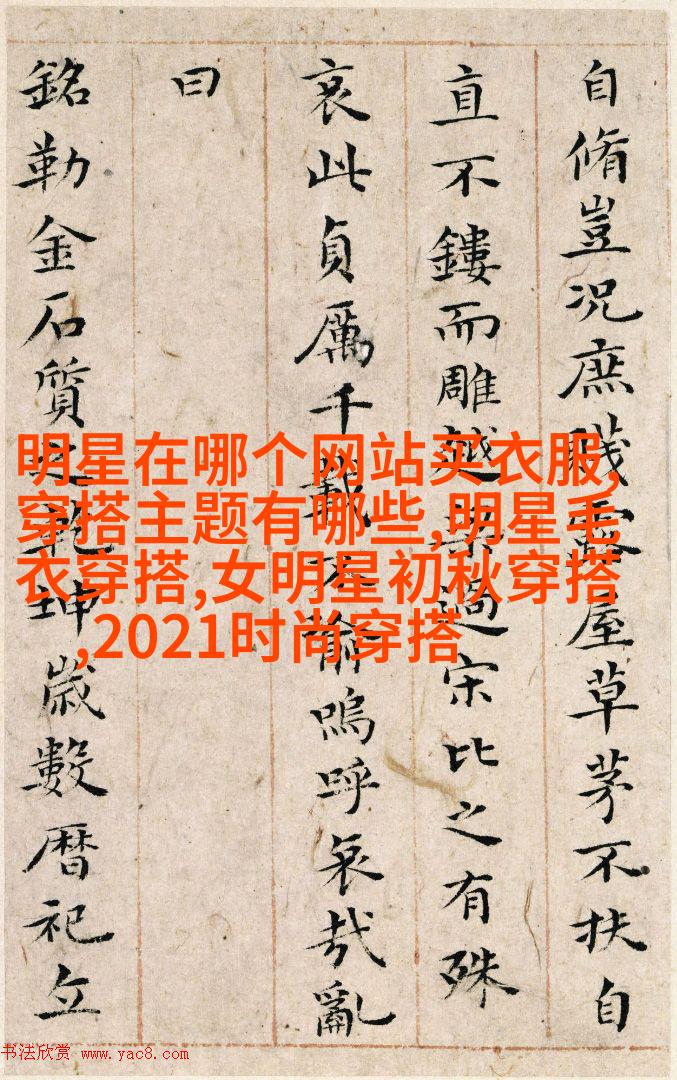 自脩豈況庶賤露屋草茅不扶自
直不鏤而雕越梁過宋比之有殊
哀此貞厲千載不渝嗚呼哀哉亂
曰
銘勒金石質之乾坤歲數暦祀立
明星在哪个网站买衣服,
穿搭主题有哪些,明星毛
衣穿搭,女明星初秋穿搭
,2021时尚穿搭
书法欣赏 www.yac8.com